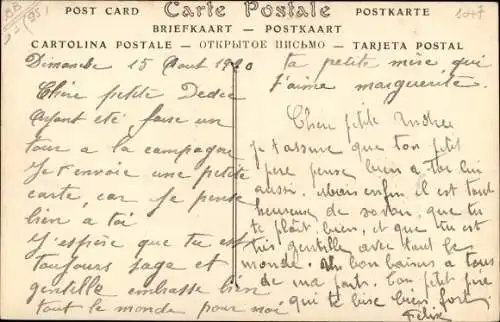 POST CARD
Carte Postale
POSTKARTE
BRIEFKAART — POSTKAART
CARTOLINA POSTALE — ОТКРЫТОЕ ПИСЬМО — TARJETA POSTAL
Dimanche 15 Aout 1920
Chère petite Dedee
Ayant été faire un
tour a la campagne
Je t'envoie une petite
carte, car Je pense
bien a toi
J'espère que tu est
toujours sage et
gentille embrasse bien
tout le monde pour moi
ta petite mère qui
t'aime marguerite.
Chere ptite
je t'assure que ton ptit
pere pense bien a toi lui
aussi. Mais enfin il est tout
heureux de savoir que tu
te plait bien, et que tu est
très gentille avec tout le
monde. Un bon baiser a tous
de ma part. Ton ptit père
qui te bise bien fort
Felix